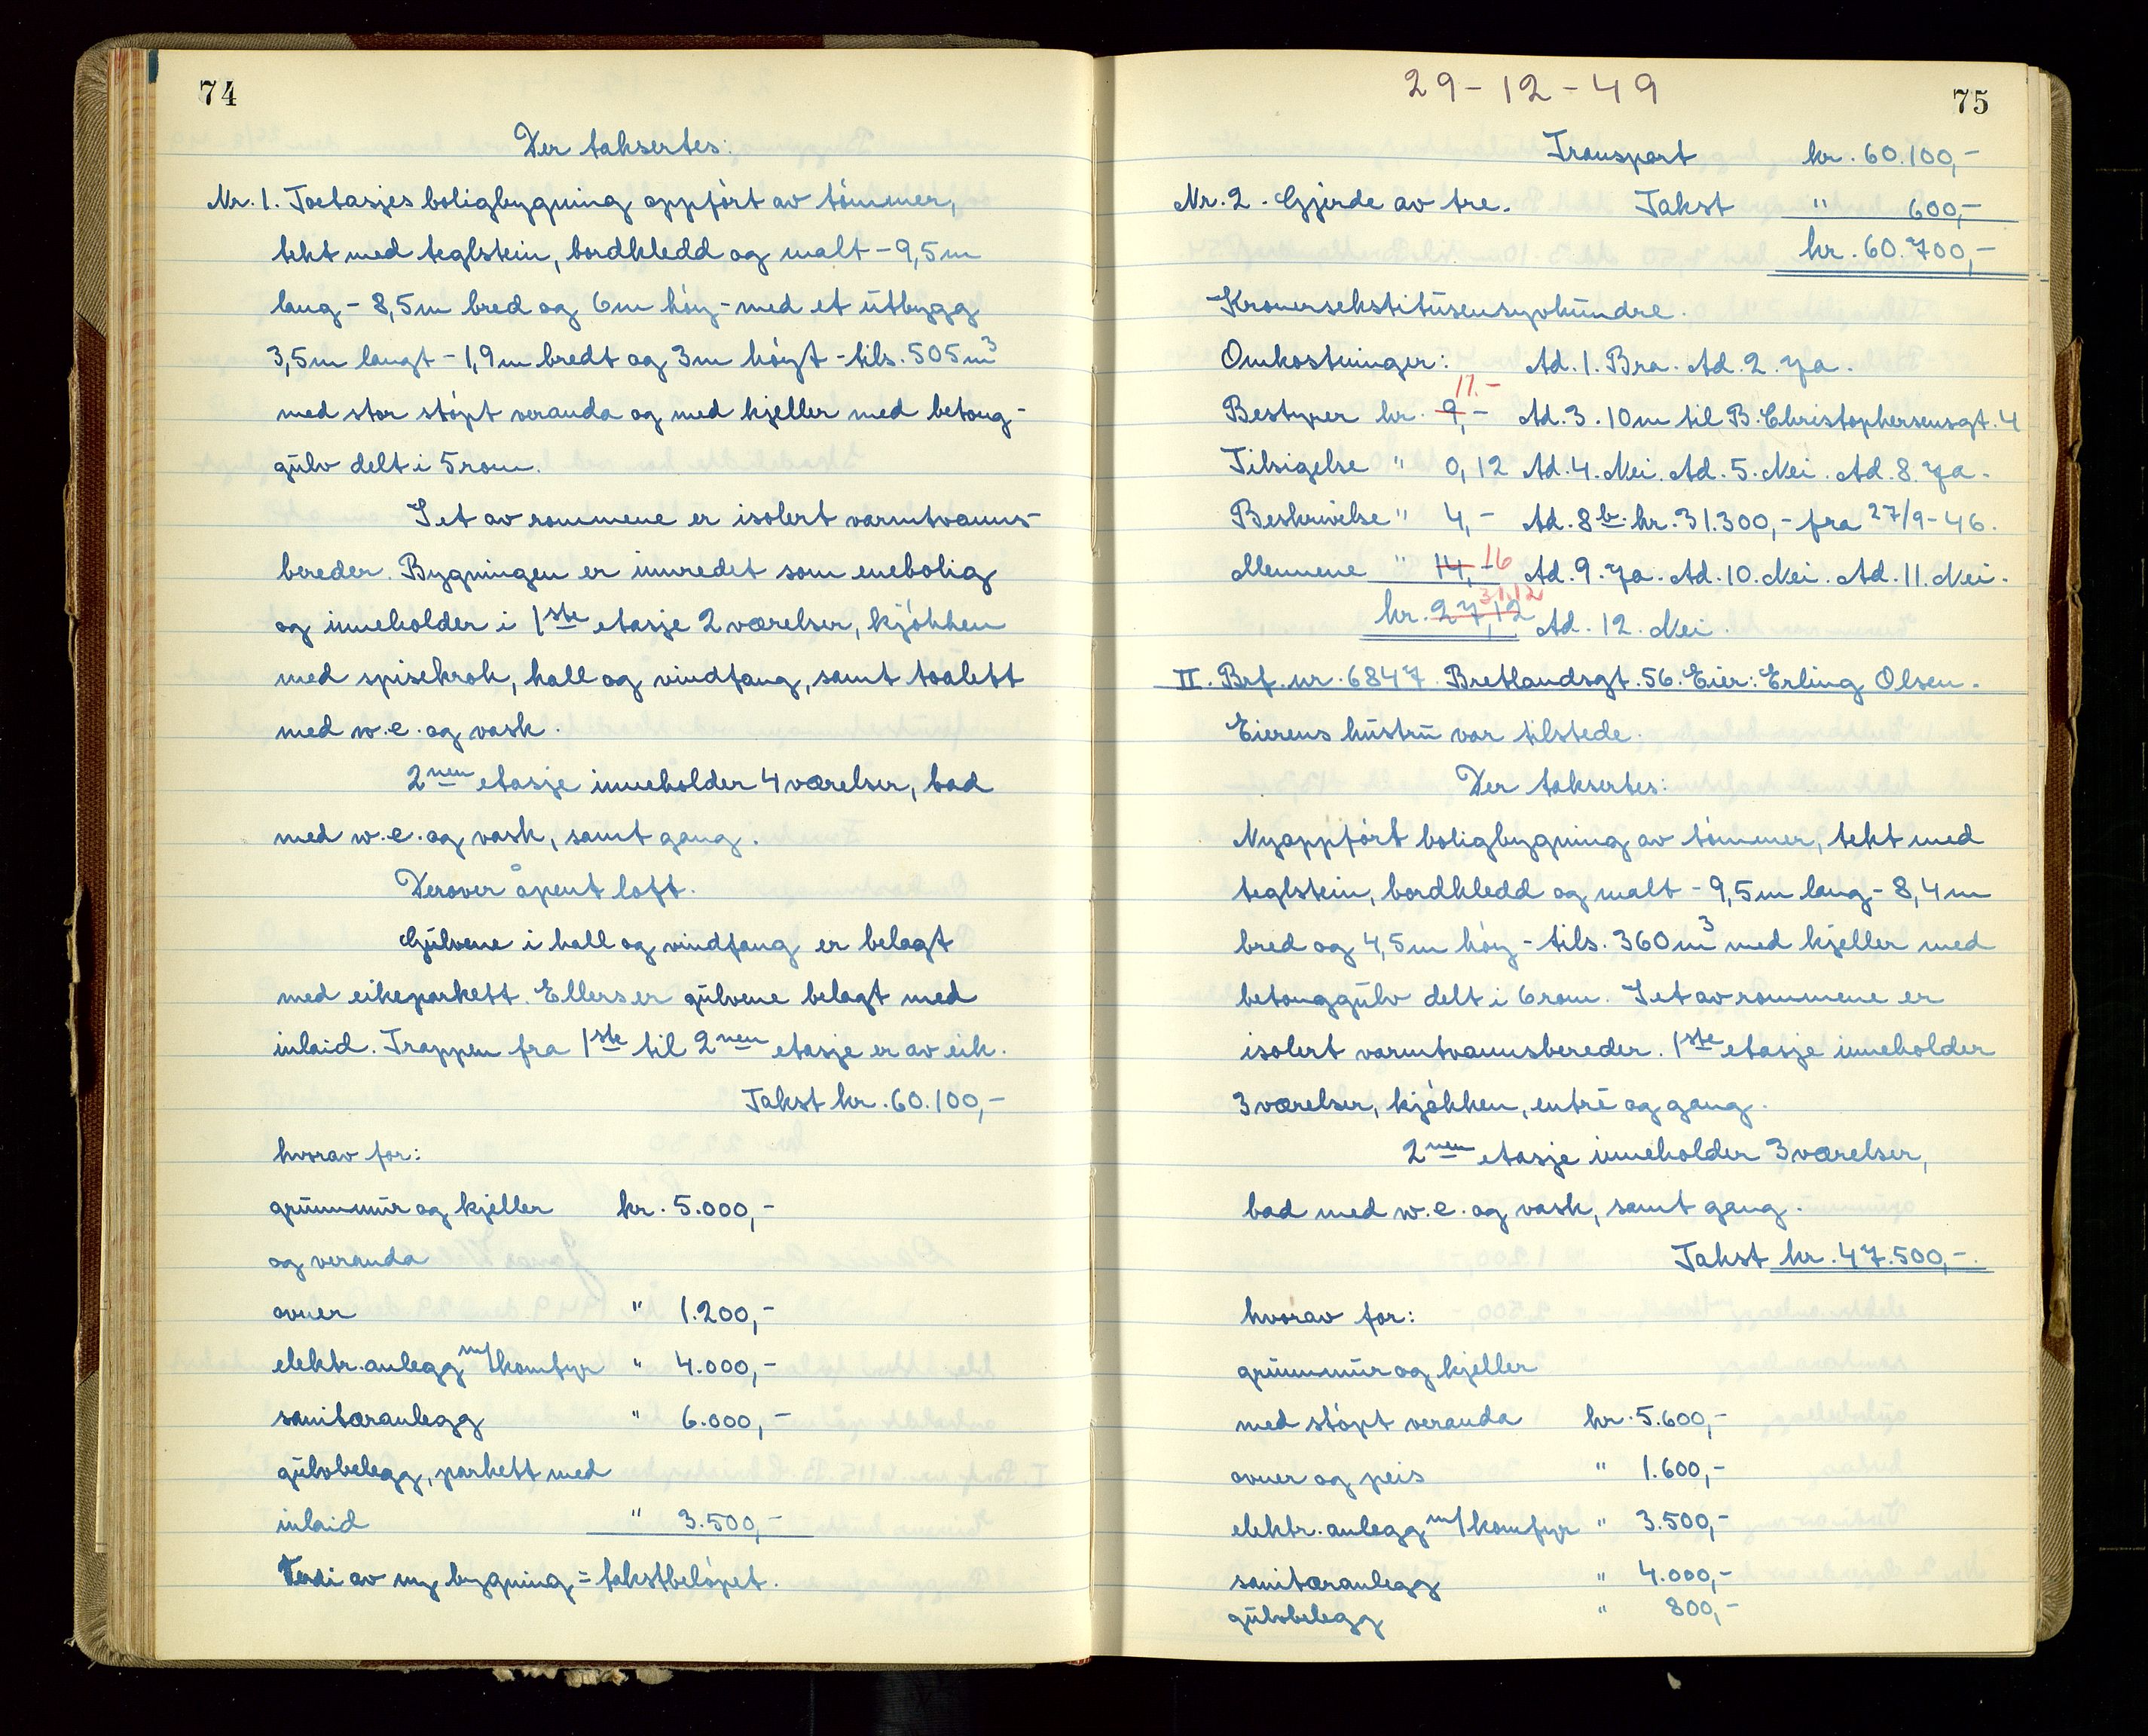 74
Der taksertes:
Nr. 1. Toetasjes boligbygning oppført av tømmer,
tekt med teglstein, bordkledd og malt – 9,5 m
lang – 8,5 m bred og 6 m høy – med et utbygg
3,5 m langt – 1,9 m bredt og 3 m høyt – tils. 505 m³
med stor støpt veranda og med kjeller med betong-
gulv delt i 5 rom.
I et av rommene er isolert varmtvanns-
bereder. Bygningen er innredet som enebolig
og inneholder i 1ste etasje 2 værelser, kjøkken
med spisekrok, hall og vindfang, samt toalett
med w.c. og vask.
2nen etasje inneholder 4 værelser, bad
med w.c. og vask, samt gang.
Derover åpent loft.
Gulvene i hall og vindfang er belagt
med eikeparkett. Ellers er gulvene belagt med
inlaid. Trappen fra 1ste til 2nen etasje er av eik.
Takst kr. 60.100,–
hvorav for:
grunnmur og kjeller kr. 5.000,–
og veranda
ovner " 1.200,–
elektr. anlegg m/komfyr " 4.000,–
sanitæranlegg " 6.000,–
gulvbelegg, parkett med
inlaid " 3.500,–
Verdi av ny bygning = takstbeløpet.
29 – 12 – 49
75
Transport kr. 60.100,–
Nr. 2. Gjerde av tre. Takst " 600,–
kr. 60.700,–
Kronersekstitusensyvhundre.
Omkostninger: Ad. 1. Bra. Ad. 2. Ja.
Bestyrer kr. 9,– 11.– Ad. 3. 10 m til B. Christophersensgt. 4
Tilsigelse " 0,12 Ad. 4. Nei. Ad. 5. Nei. Ad. 8. Ja.
Beskrivelse " 4,– Ad. 8b. kr. 31.300,– fra 27/9–46.
Mennene " 14,– 16 Ad. 9. Ja. Ad. 10. Nei. Ad. 11. Nei.
kr. 27,12 31,12 Ad. 12. Nei.
II. Brf. nr. 6847. Bretlandsgt. 56. Eier: Erling Olsen.
Eierens hustru var tilstede.
Der taksertes:
Nyoppført boligbygning av tømmer, tekt med
teglstein, bordkledd og malt – 9,5 m lang – 8,4 m
bred og 4,5 m høy – tils. 360 m³ med kjeller med
betonggulv delt i 6 rom. I et av rommene er
isolert varmtvannsbereder. 1ste etasje inneholder
3 værelser, kjøkken, entré og gang.
2nen etasje inneholder 3 værelser,
bad med w.c. og vask, samt gang.
Takst kr. 47.500,–.
hvorav for:
grunnmur og kjeller
med støpt veranda kr. 5.600,–
ovner og peis " 1.600,–
elektr. anlegg m/komfyr " 3.500,–
sanitæranlegg " 4.000,–
gulvbelegg " 800,–